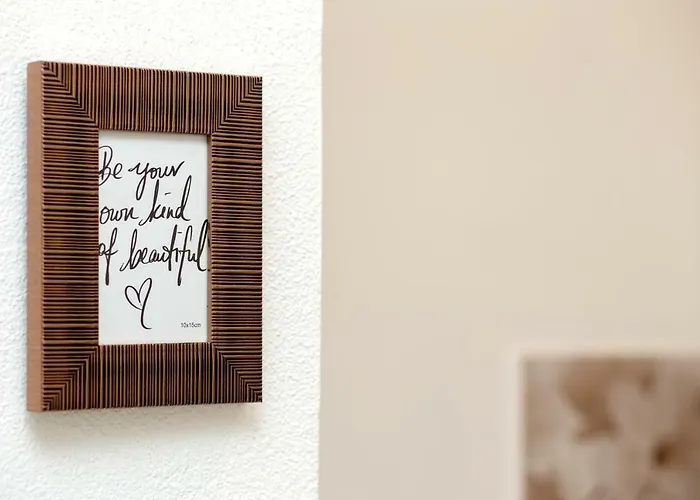 Be your
own kind
of beautiful
10x15cm